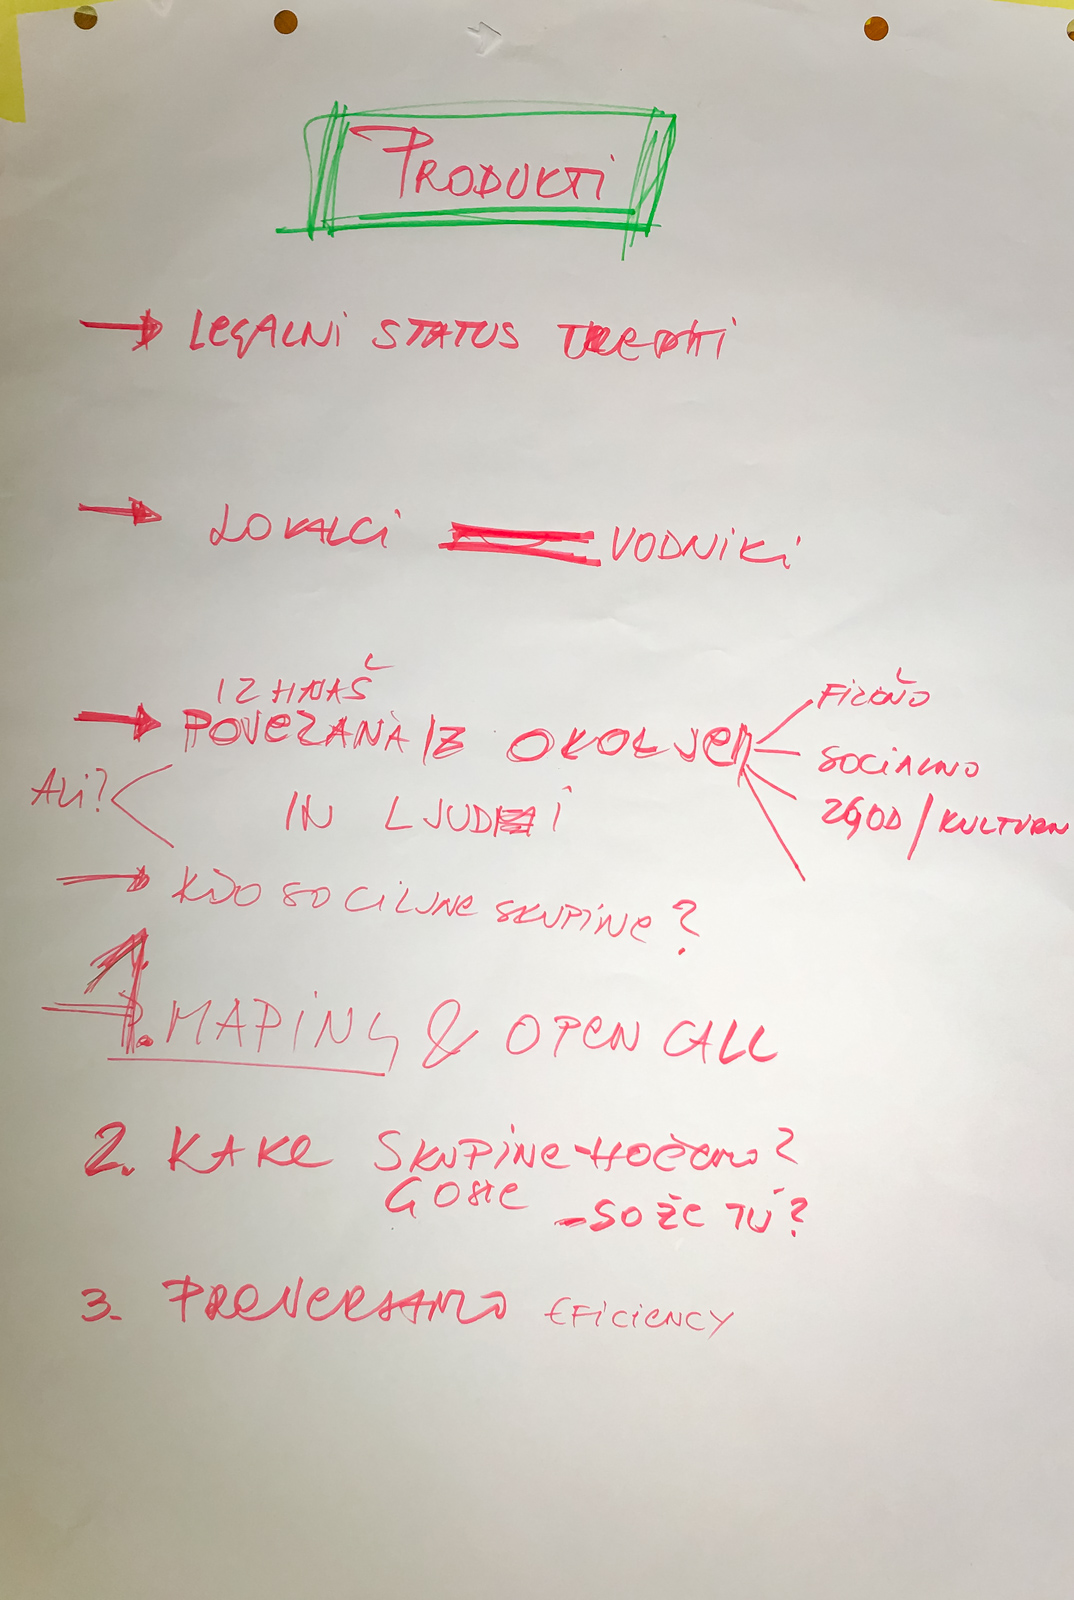 PRODUKTI
→ LEGALNI STATUS
→ LOKALCI VODNIKI
IZHNAŠ
→ POVEZANA IZ OKOLJEM
FIZIČNO
SOCIALNO
ZGOD / KULTURN
ALI?
IN LJUDMI
→ KDO SO CILJNE SKUPINE?
1. MAPING & OPEN CALL
2. KAKE SKUPINE HOČEMO?
GOSTE - SO ŽE TU?
3. PREVERJAMO EFICIENCY